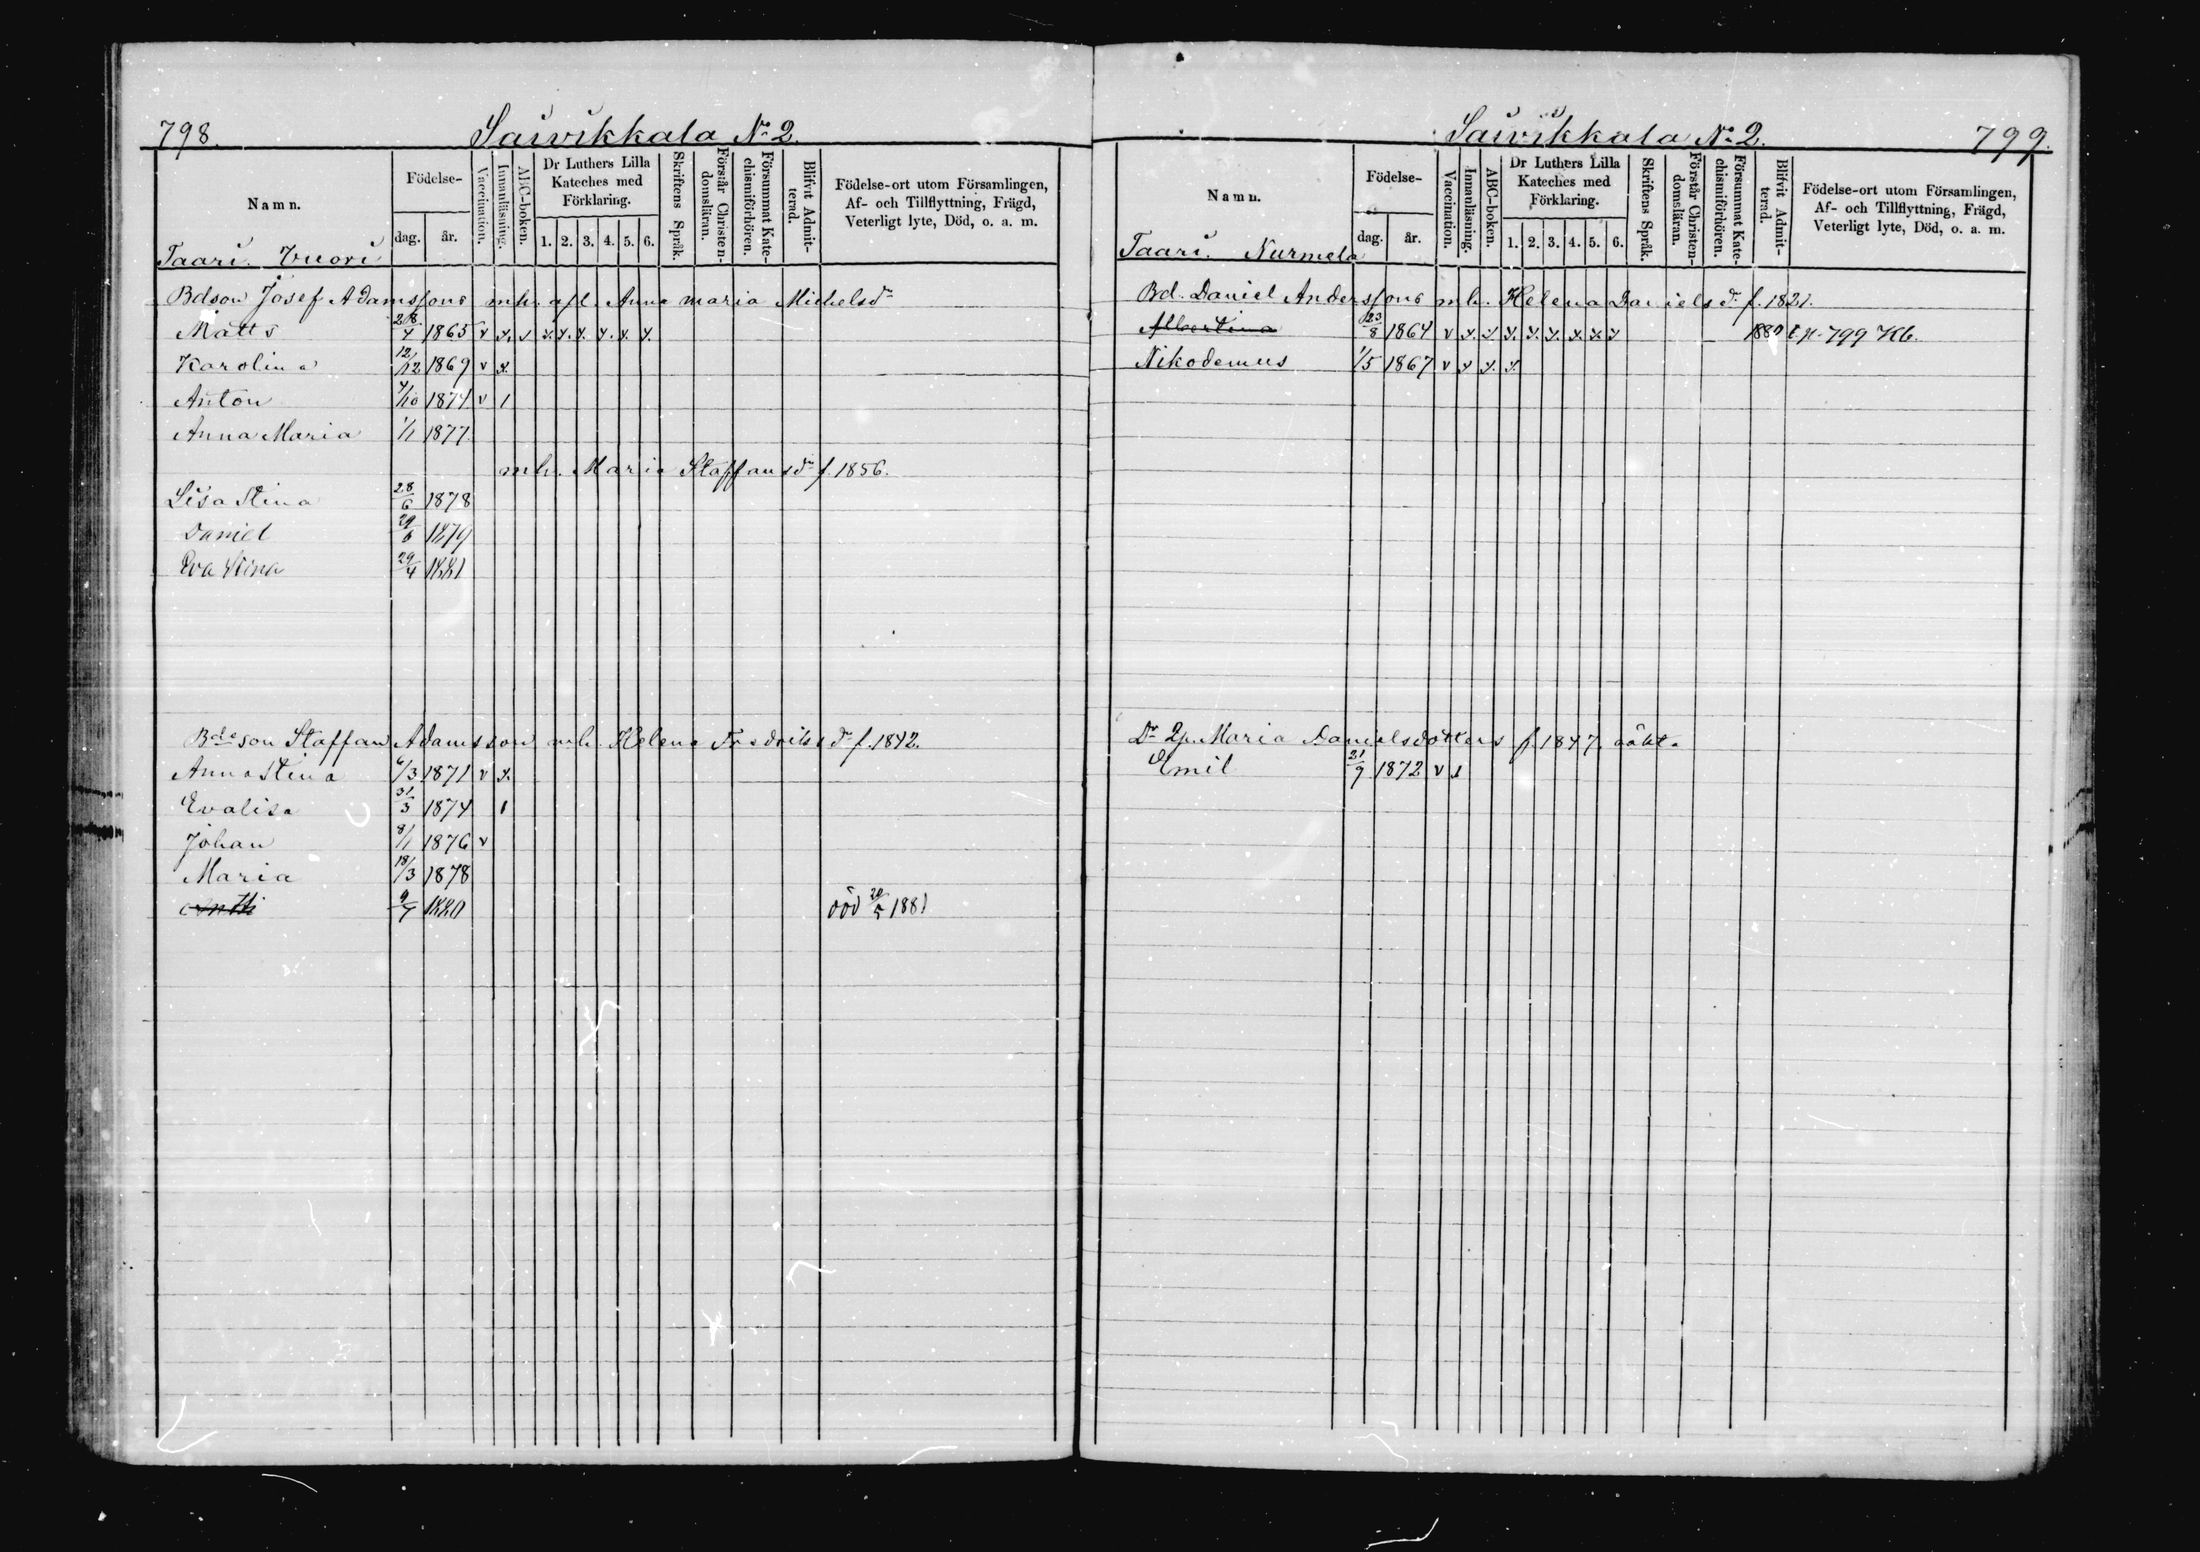 798.
Saivikkala No 2.
Namn.
Födelse-
dag.
år.
Vaccination.
Innanläsning.
ABC-boken.
Dr Luthers Lilla Kateches med Förklaring.
1. 2. 3. 4. 5. 6.
Skriftens Språk.
Förstår Christendomsläran.
Försummat Katechismiförhören.
Blifvit Admitterad.
Födelse-ort utom Församlingen,
Af- och Tillflyttning, Frägd,
Veterligt lyte, Död, o. a. m.
Taari. Vuori
Bdson Josef Adamssons mh. afl. Anna Maria Michelsdr
Matts 28/4 1865 v x. x x. x. x. x. x. x.
Karolina 12/12 1869 v x.
Anton 4/10 1874 v 1
Anna Maria 1/1 1877.
mh. Maria Staffansdr f. 1856.
Lisa Stina 28/6 1878
Daniel 29/6 1879
Eva Stina 29/4 1881
Bdeson Staffan Adamsson mh. Helena Fredriksdr f. 1842.
Anna Stina 6/3 1871 v x.
Evalisa 31/3 1874 1
Johan 8/1 1876 v
Maria 18/3 1878
Antti 9/7 1880 död 20/5 1881
Saivikkala No 2.
799.
Namn.
Födelse-
dag.
år.
Vaccination.
Innanläsning.
ABC-boken.
Dr Luthers Lilla Kateches med Förklaring.
1. 2. 3. 4. 5. 6.
Skriftens Språk.
Förstår Christendomsläran.
Försummat Katechismiförhören.
Blifvit Admitterad.
Födelse-ort utom Församlingen,
Af- och Tillflyttning, Frägd,
Veterligt lyte, Död, o. a. m.
Taari. Nurmela
Bd. Daniel Anderssons mh. Helena Danielsdr f. 1821.
Albertina 23/8 1864 v x. x x. x. x. x. x. x 1880 t p. 799 Kb.
Nikodemus 1/5 1867 v x x. x.
Dr Maria Danielsdotters f. 1847. oäkta
Emil 21/9 1872 v 1